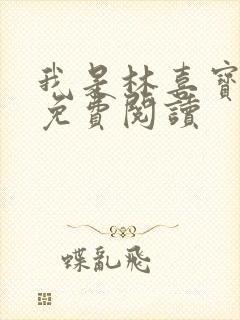 我是林喜寶
免費閱讀
蝶亂飛